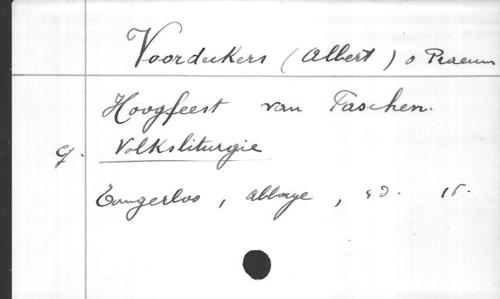 Voordeckers (Albert) o Praem
Hoogfeest van Paschen.
g. Volksliturgie
Tongerloo, abbaye, s.d. 15.